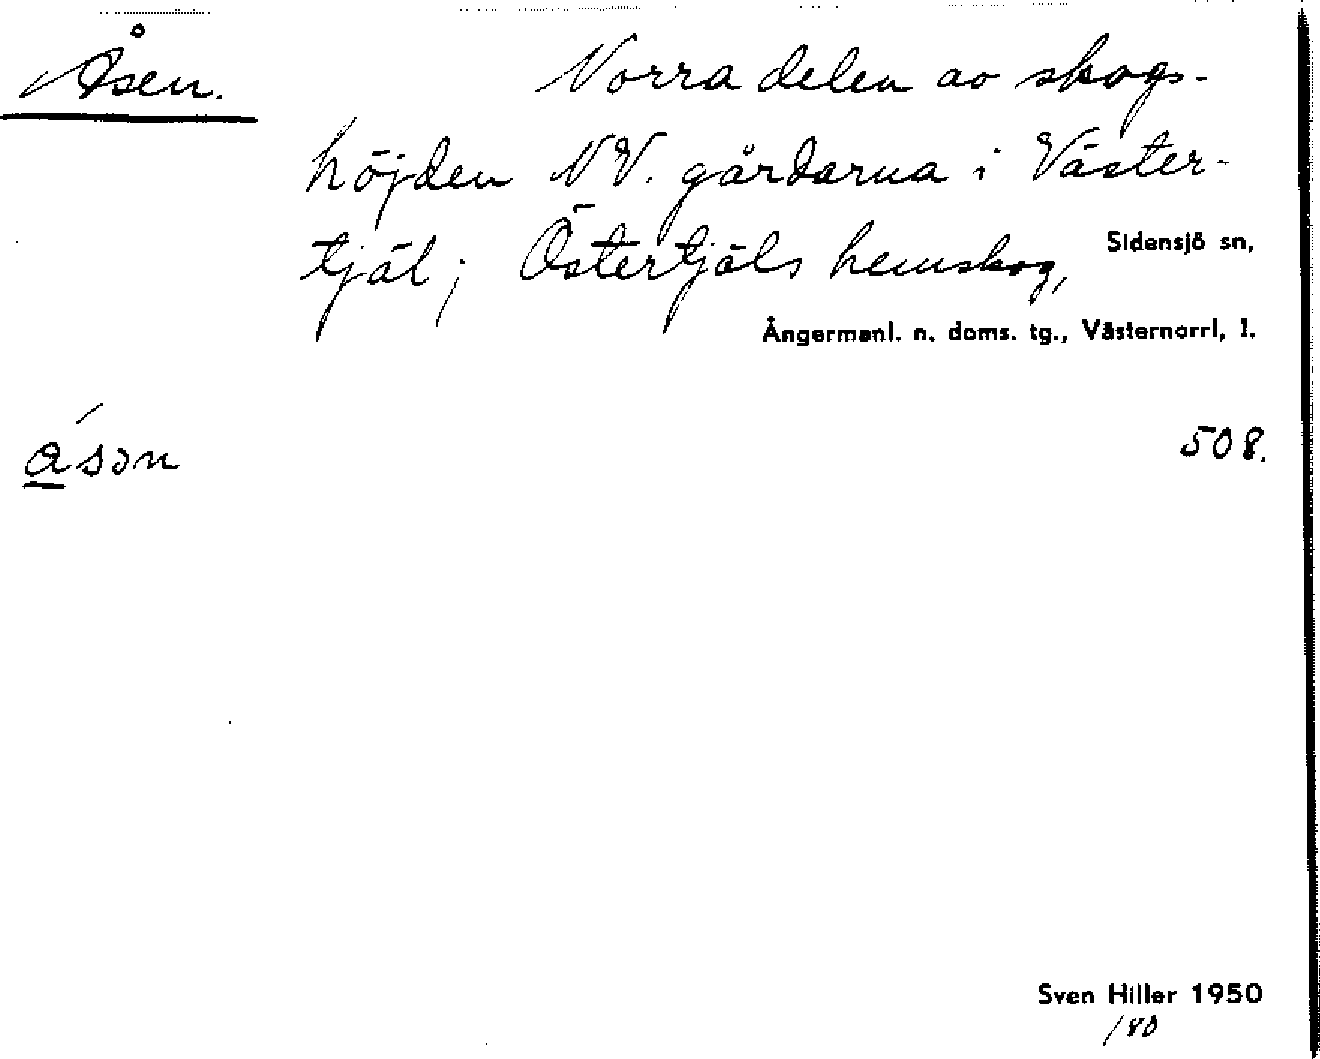 Åsen.
Norra delen av skogs-
höjden NV. gårdarna i Väster-
tjäl; Östertjäls hemskog,
Sidensjö sn,
Ångermanl. n. doms. tg., Västernorrl, l.
508.
Sven Hiller 1950
/80